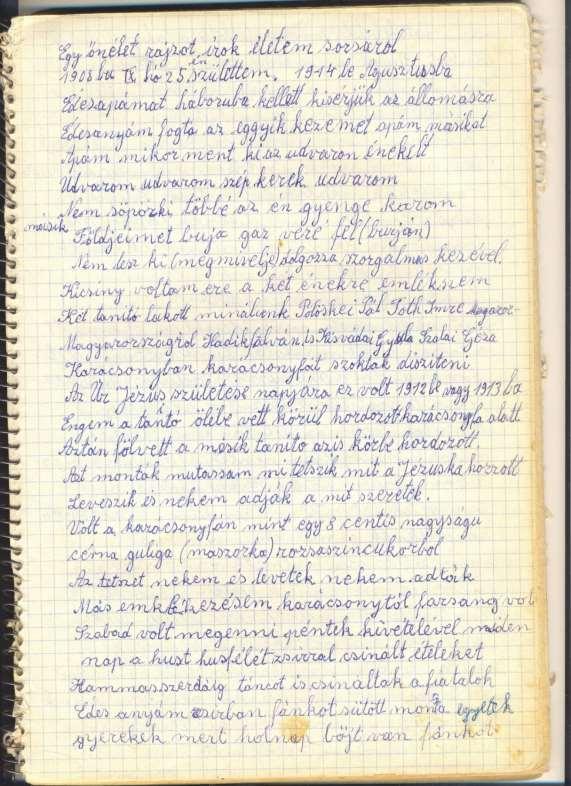 Egy önélet rajzot írok életem sorsáról
1908 ba IX hó 25 én születtem. 1914 be Agusztusba
Édesapámat háboruba kellett kisérjük az állomásra
Édesanyám fogta az eggyik kezemet apám másikat
Apám mikor ment ki az udvaron énekelt
Udvarom udvarom szép kerek udvarom
Nem söpözki többé az én gyenge karom
másik Földjeimet buja gaz veré fel (burján)
Nem lesz ki (megmivelje) dolgozza szorgalmas kezével.
Kicsiny voltam ere a két énekre emlékszem
Két tanitó lakott minálunk Pölöskei Pál Tóth Imre
Magyarországról Hadikfalván is Kisvádai Gyula Szalai Géza
Karácsonyban karácsonyfát szoktak disziteni
Az Úr Jézus születése napjára ez volt 1912 be vagy 1913 ba
Engem a tanító ölibe vett körül hordozott karácsonyfa alatt
Aztán fölvett a másik tanito azis körbe hordozott
Azt monták mutassam mi tetszik mit a Jézuska hozott
Leveszik és nekem adják a mit szeretek.
Volt a karácsonyfán mint egy 8 centis nagyságu
cérna guliga (maszorka) rozsaszincukorból
Az tetszet nekem és levették nekem adták
Más emlékezésem karácsonytól farsang vol
Szabad volt megenni péntek kivételével minden
nap a hust husfélét zsirral csinált ételeket
Hammasszerdáig táncot is csináltak a fiatalok
Édes anyám zsirban fánkot sütött monta egyetek
gyerekek mert holnap böjt van fánkot